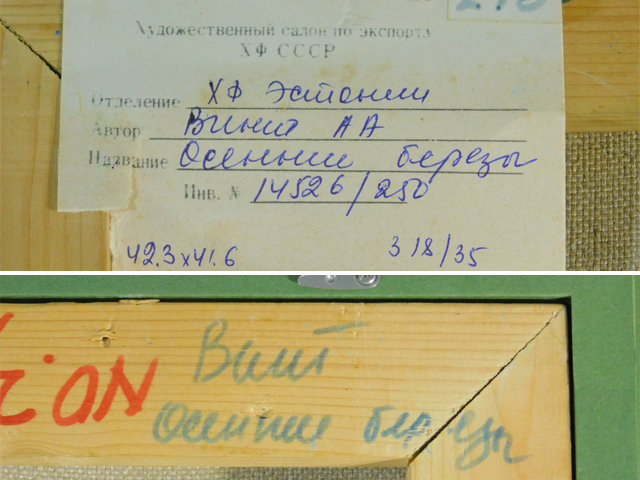 Художественный салон по экспорту
ХФ СССР
Отделение ХФ Эстонии
Автор Винт А А
Название Осенние березы
Инв. № 14526/250
42.3x41.6 318/35
Винт
Осенние березы